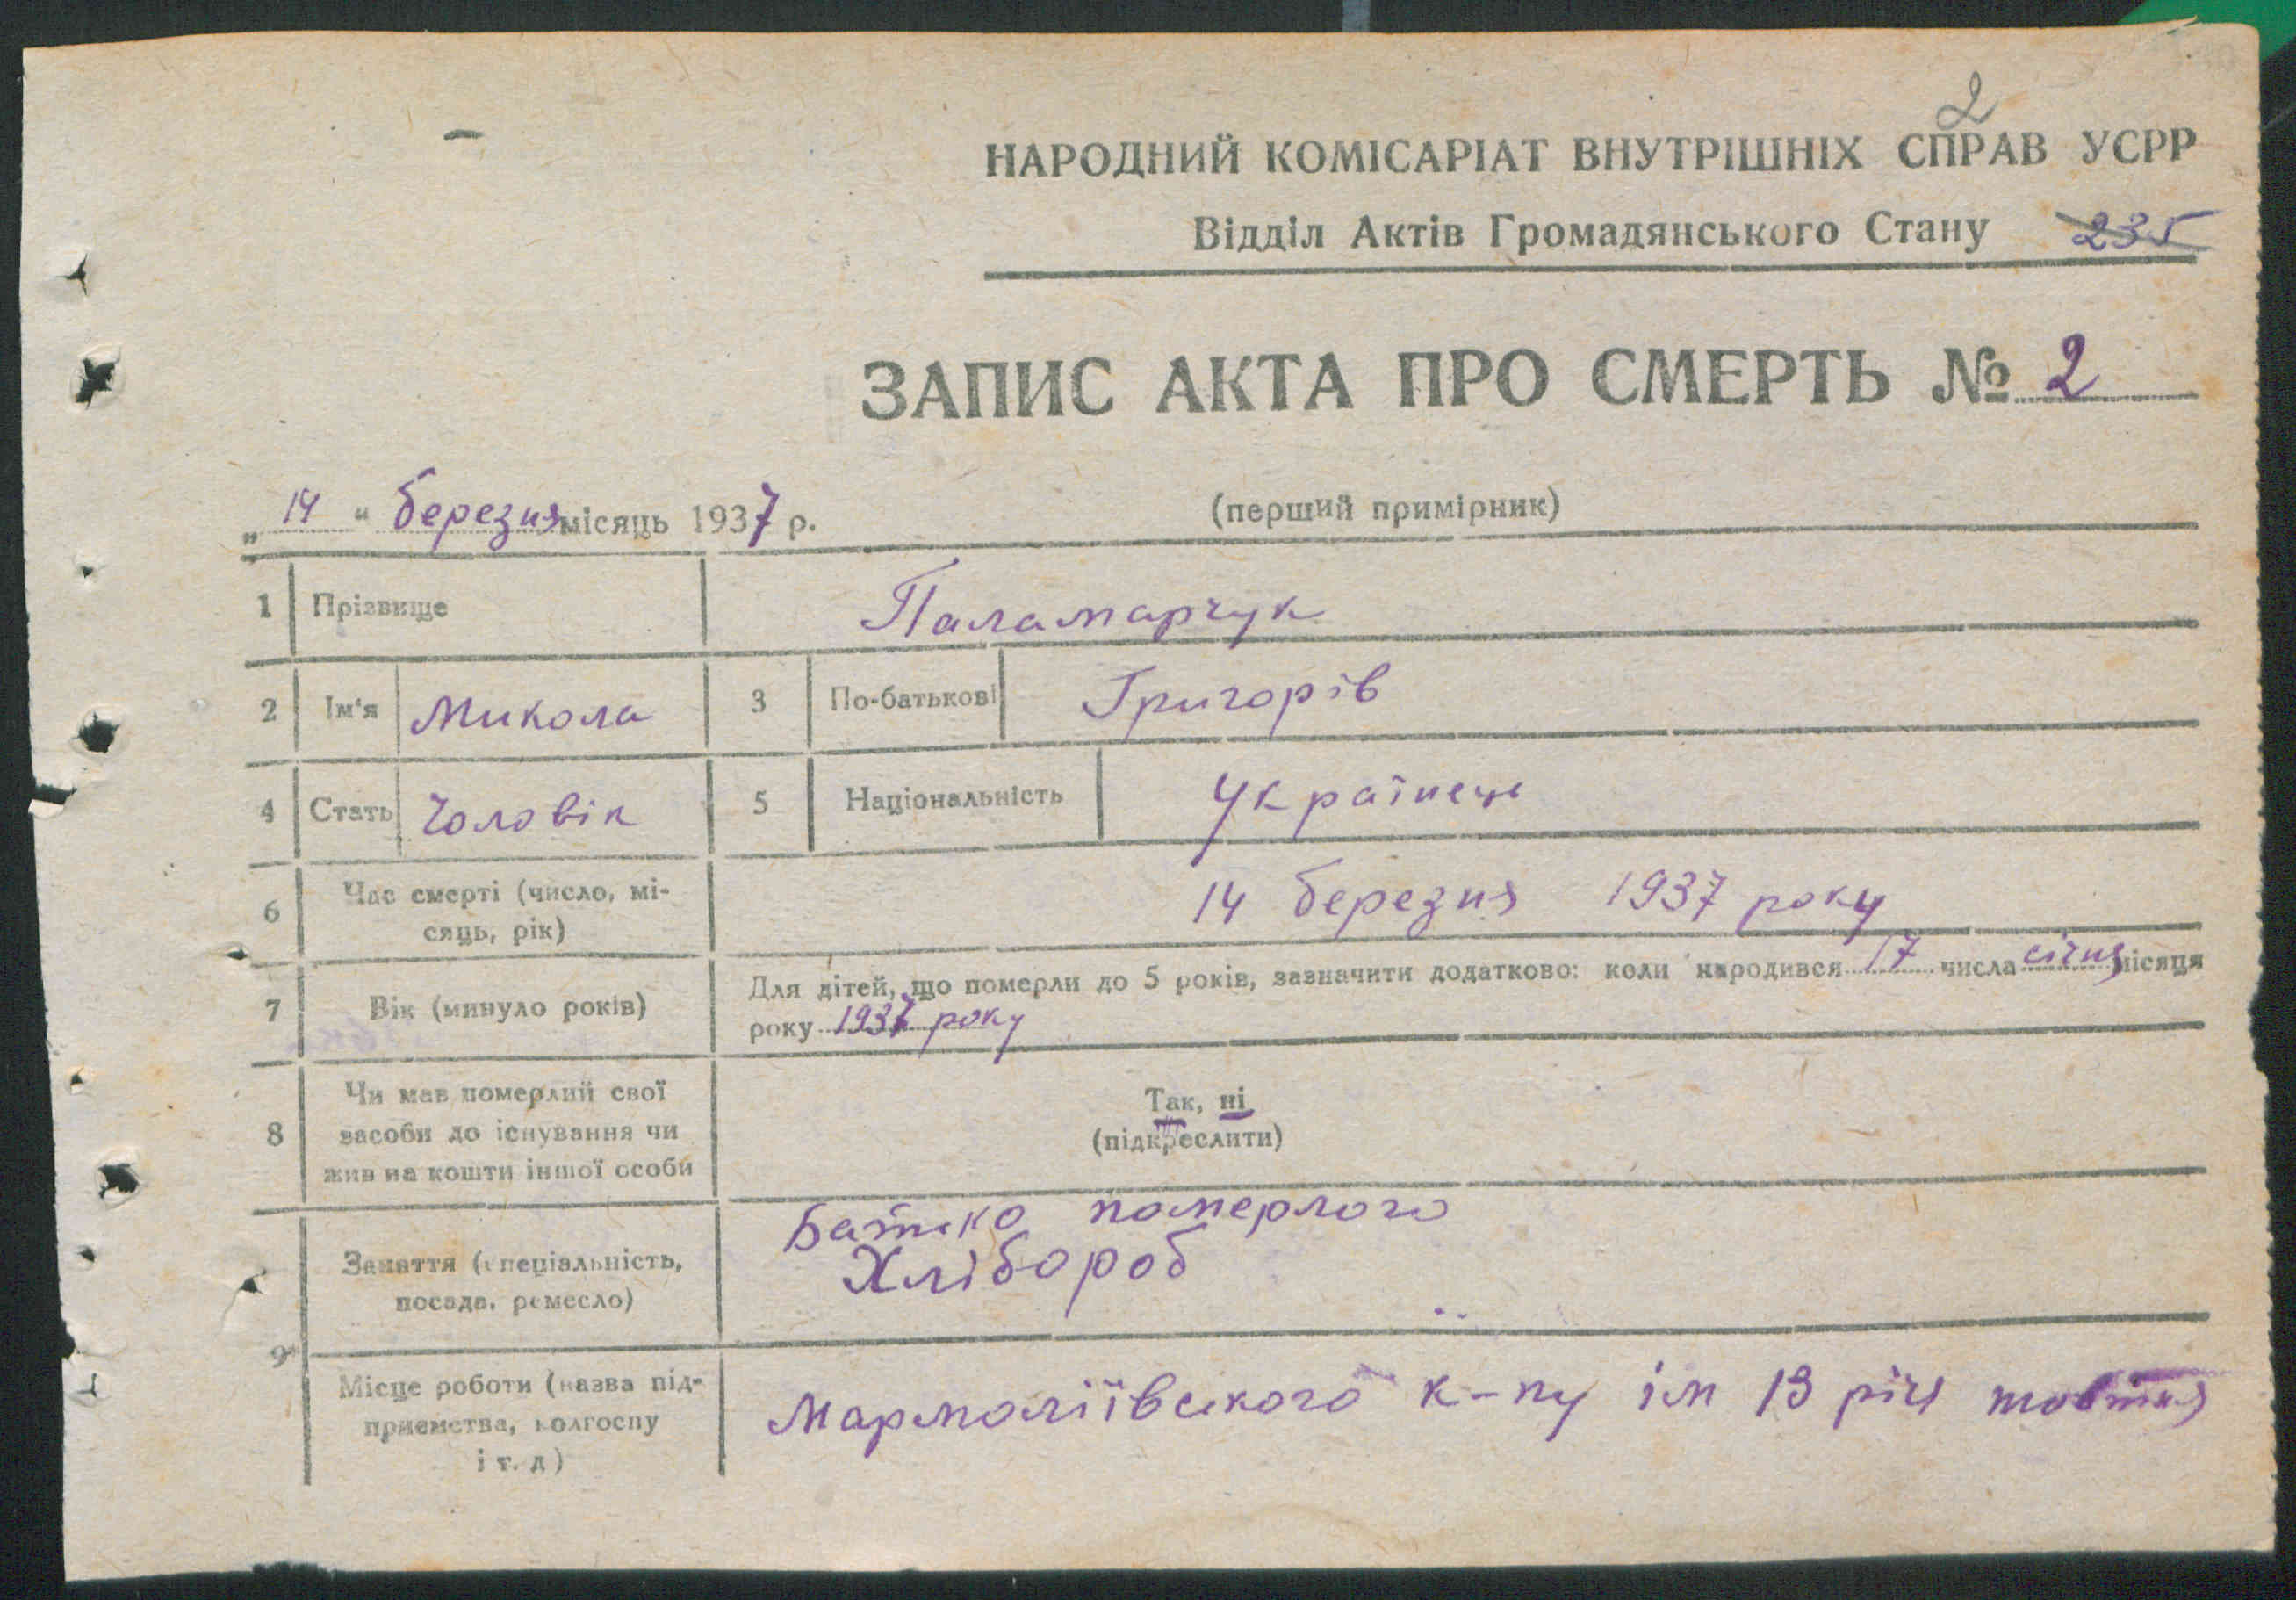 2
НАРОДНИЙ КОМІСАРІАТ ВНУТРІШНІХ СПРАВ УСРР
Відділ Актів Громадянського Стану 235
ЗАПИС АКТА ПРО СМЕРТЬ № 2
„ 14 " березня місяць 1937 р.
(перший примірник)
1 Прізвище Паламарчук
2 Ім'я Микола 3 По-батькові Григорів
4 Стать Чоловік 5 Національність Українець
6 Час смерті (число, мі-
сяць, рік) 14 березня 1937 року
7 Вік (минуло років) Для дітей, що померли до 5 років, зазначити додатково: коли народився 17 числа січня місяця
року 1937 року
8 Чи мав померлий свої
засоби до існування чи
жив на кошти іншої особи
Так, ні
(підкреслити)
9 Заняття (спеціальність,
посада, ремесло)
Батько померлого
Хлібороб
Місце роботи (назва під-
приємства, колгоспу
і т. д)
Мармоліївского к-пу ім 13 річ жовтня